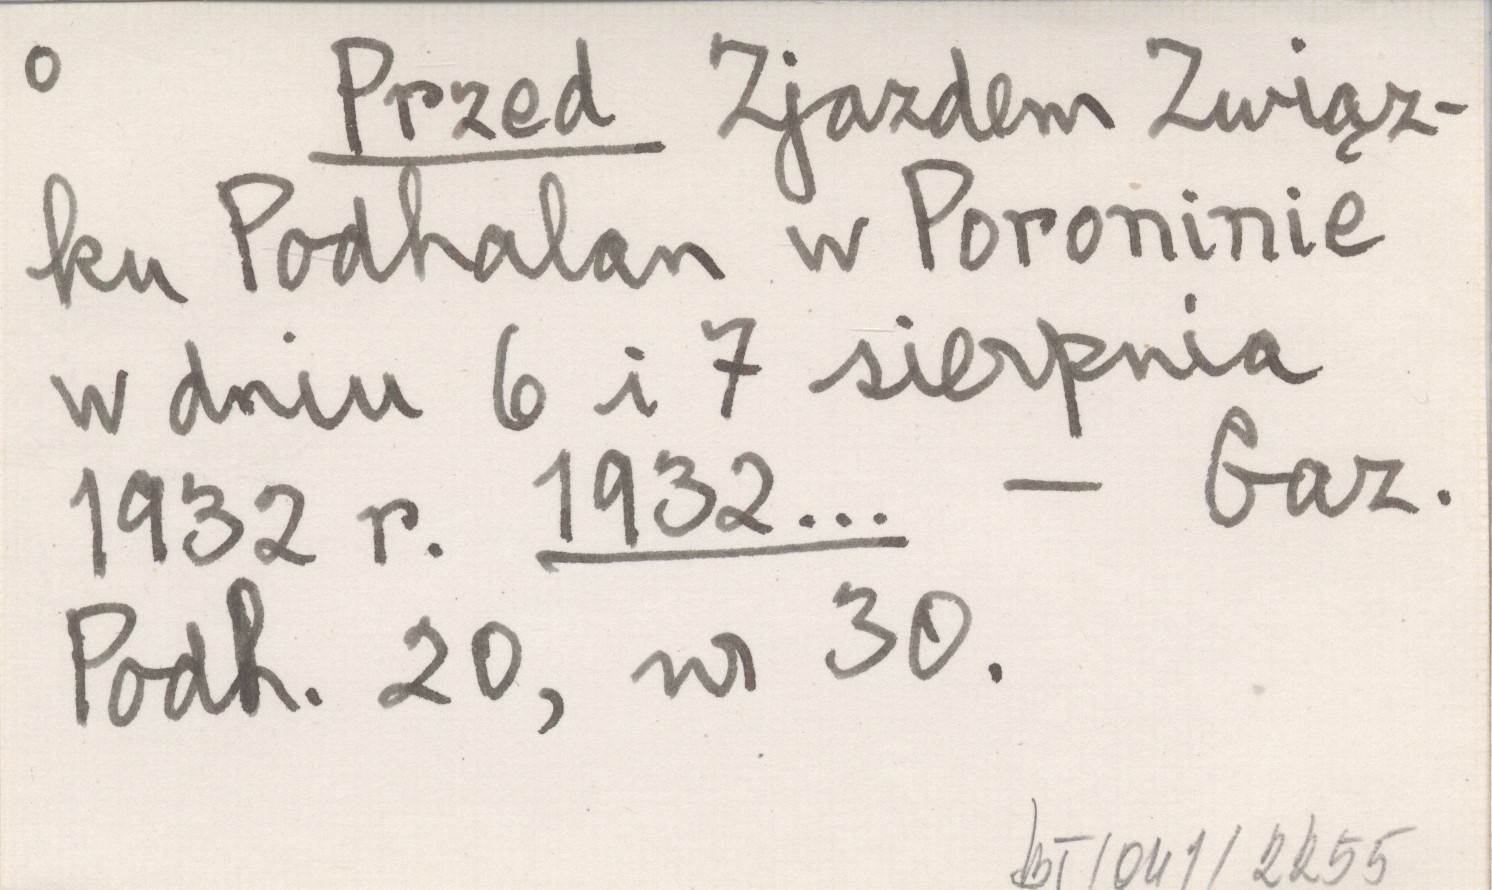 o Przed Zjazdem Związ-
ku Podhalan w Poroninie
w dniu 6 i 7 sierpnia
1932 r. 1932... — Gaz.
Podh. 20, nr 30.
/041/2255